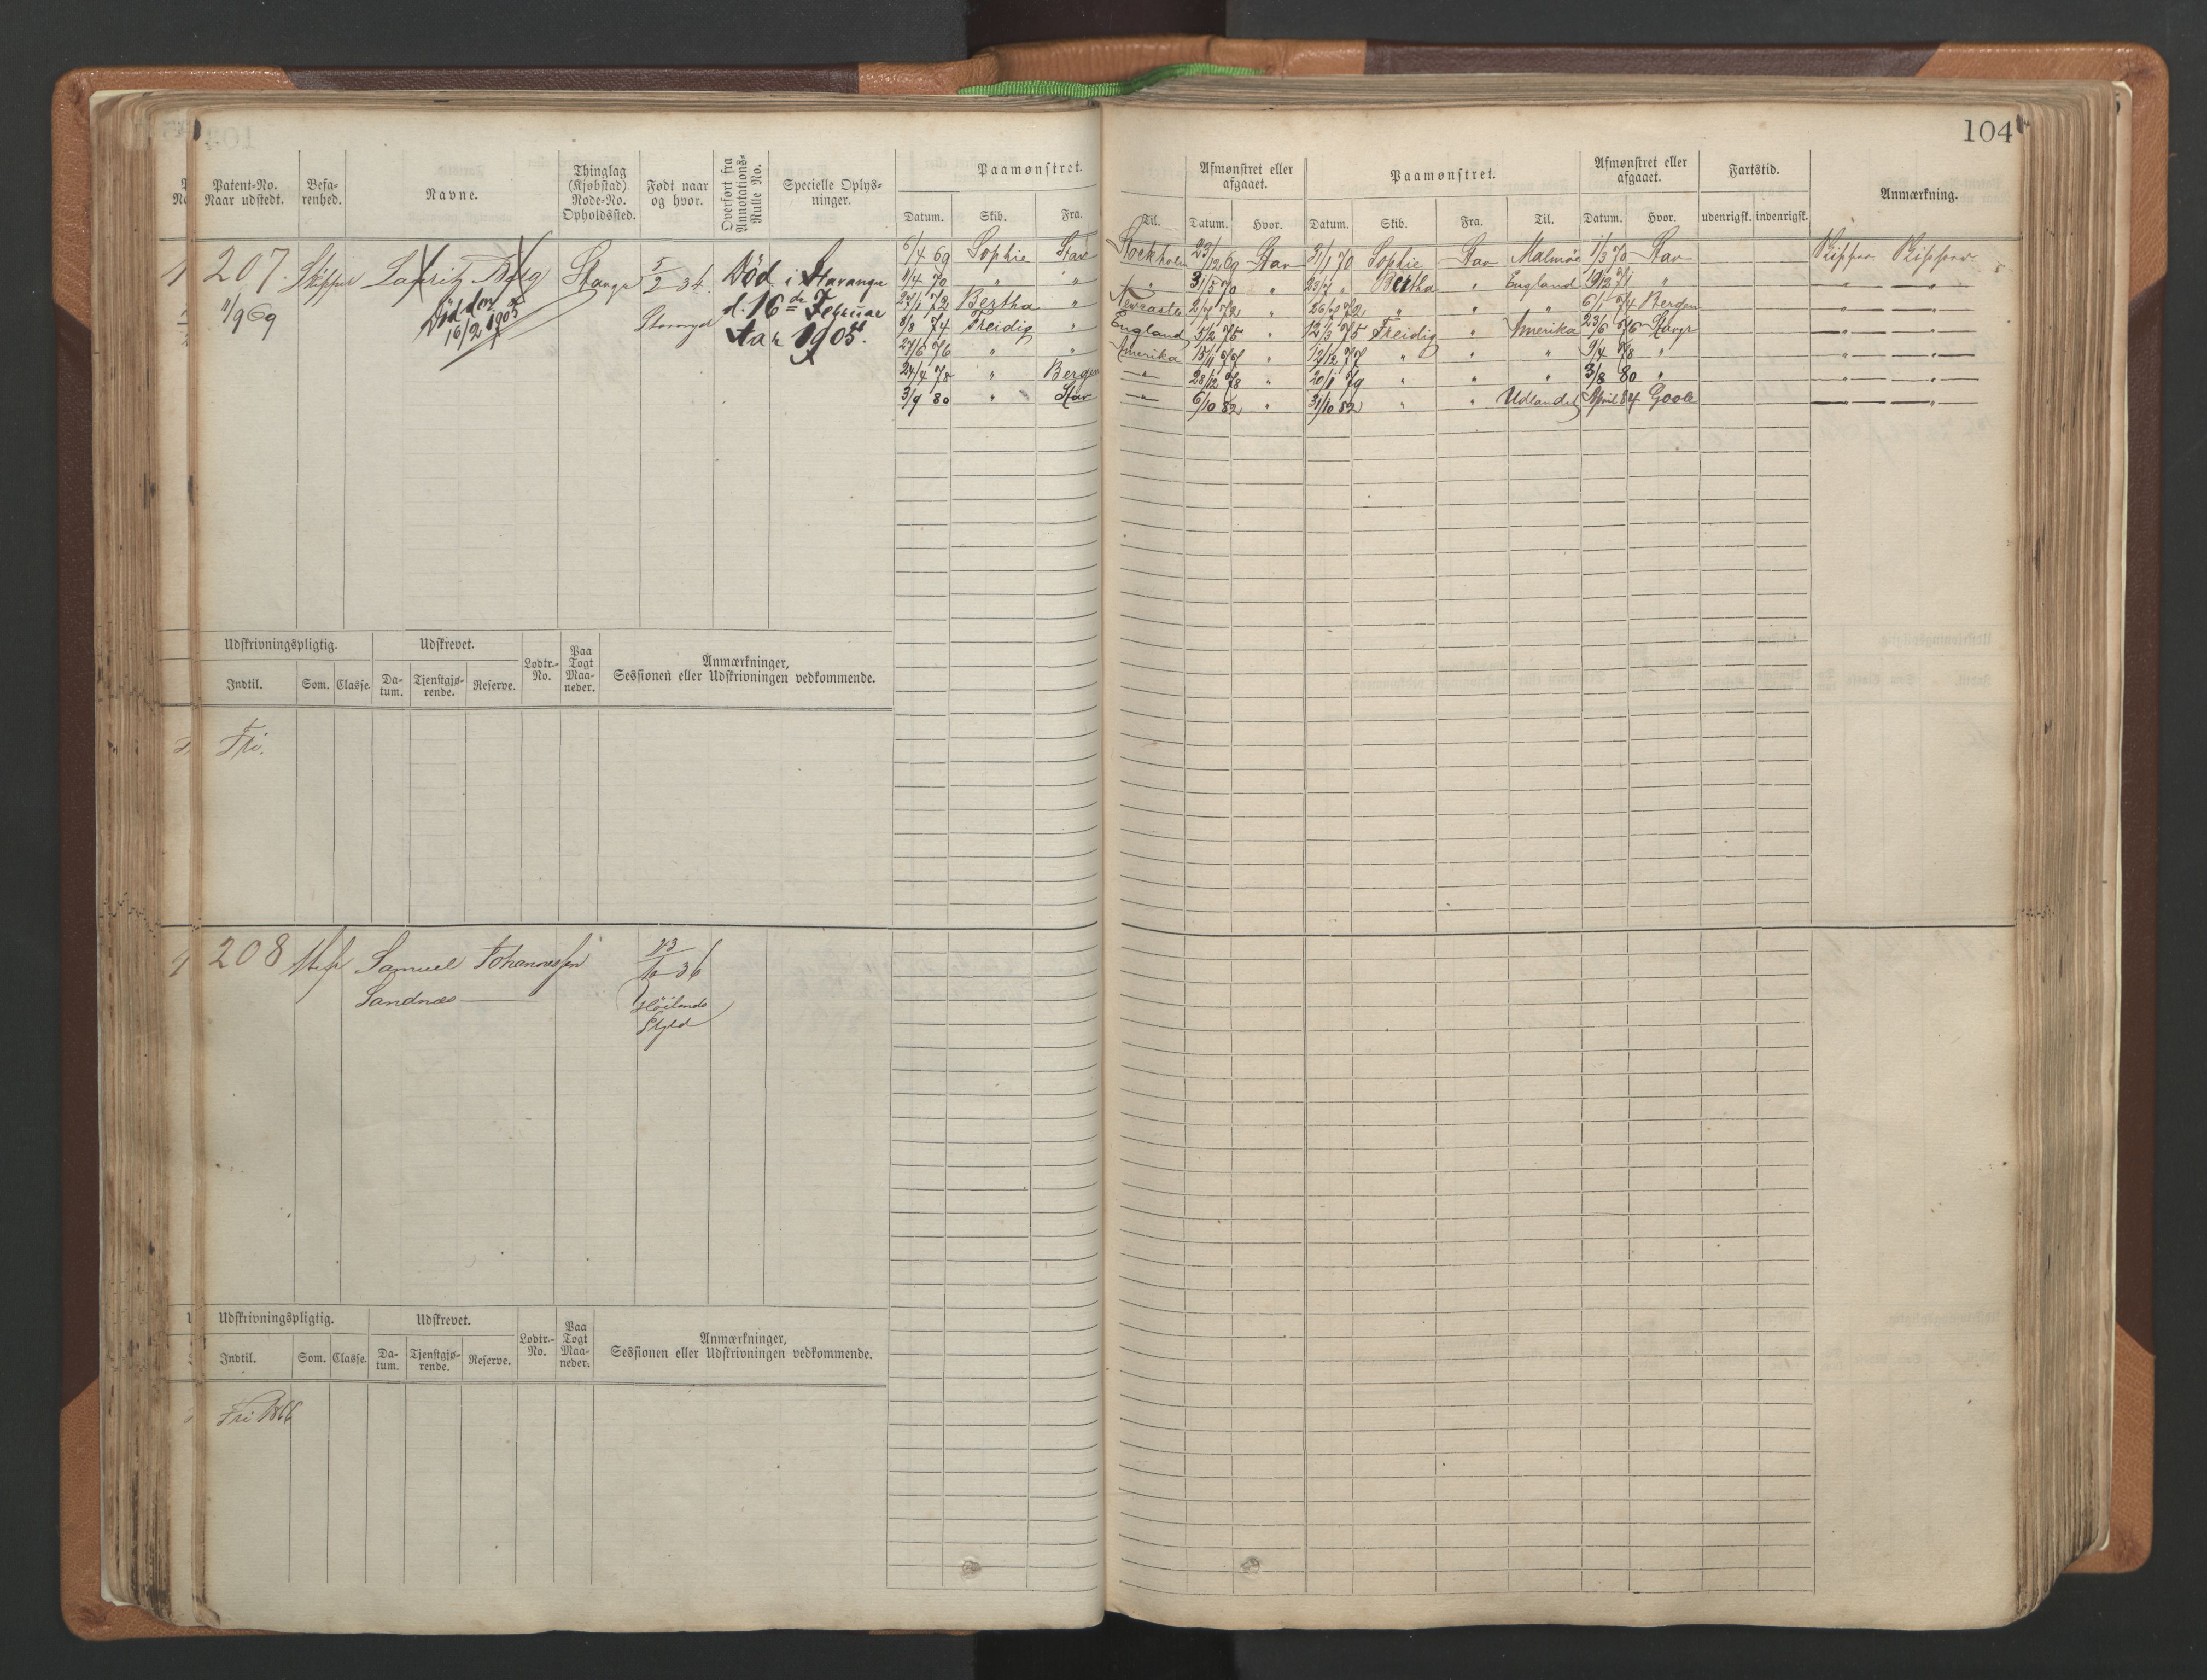 104
Patent-No. Naar udstedt.
Befarenhed.
Navne.
Thinglag (Kjøbstad) Rode-No. Opholdssted.
Født naar og hvor.
Overført fra Annotations-Rulle No.
Specielle Oplysninger.
Paamønstret.
Datum. Skib. Fra. Til.
Afmønstret eller afgaaet.
Datum. Hvor.
Paamønstret.
Datum. Skib. Fra. Til.
Afmønstret eller afgaaet.
Datum. Hvor.
Fartstid.
udenrigsk. indenrigsk.
Anmærkning.
207.
11/9 69
Skipper
Død den
16/2 1905
Stavgr
5/2 34.
Død i Stavanger
d. 16de Februar
1905.
6/4 69 Sophie Stav Stockholm 23/12 69 Stav 31/1 70 Sophie Stav Malmöe 1/3 70 Stav
11/4 70 " " " 31/5 70 " Bertha " England 19/12 71 "
Bertha " Newcastle " " " 6/1 74 Bergen
8/8 74 Freidig " England 5/2 75 " 12/3 75 Freidig " Amerika 23/6 76 Stavgr
27/6 76 " " Amerika " 12/12 77 " " " 9/4 78 "
24/4 78 " Bergen — " — 28/12 78 " 20/1 79 " " " 3/8 80 "
3/9 80 " Stav — " — 6/10 82 " 31/10 82 " " Udlandet April 84 Goole
Udskrivningspligtig.
Udskrevet.
Indtil. Som. Classe.
Datum. Tjenstgjørende. Reserve.
Lodtr.-No.
Paa Togt Maaneder.
Anmærkninger,
Sessionen eller Udskrivningen vedkommende.
Fri.
208
Samuel Johannessen
Sandnæs
36
Høilands
Udskrivningspligtig.
Udskrevet.
Indtil. Som. Classe.
Datum. Tjenstgjørende. Reserve.
Lodtr.-No.
Paa Togt Maaneder.
Anmærkninger,
Sessionen eller Udskrivningen vedkommende.
Fri 1866